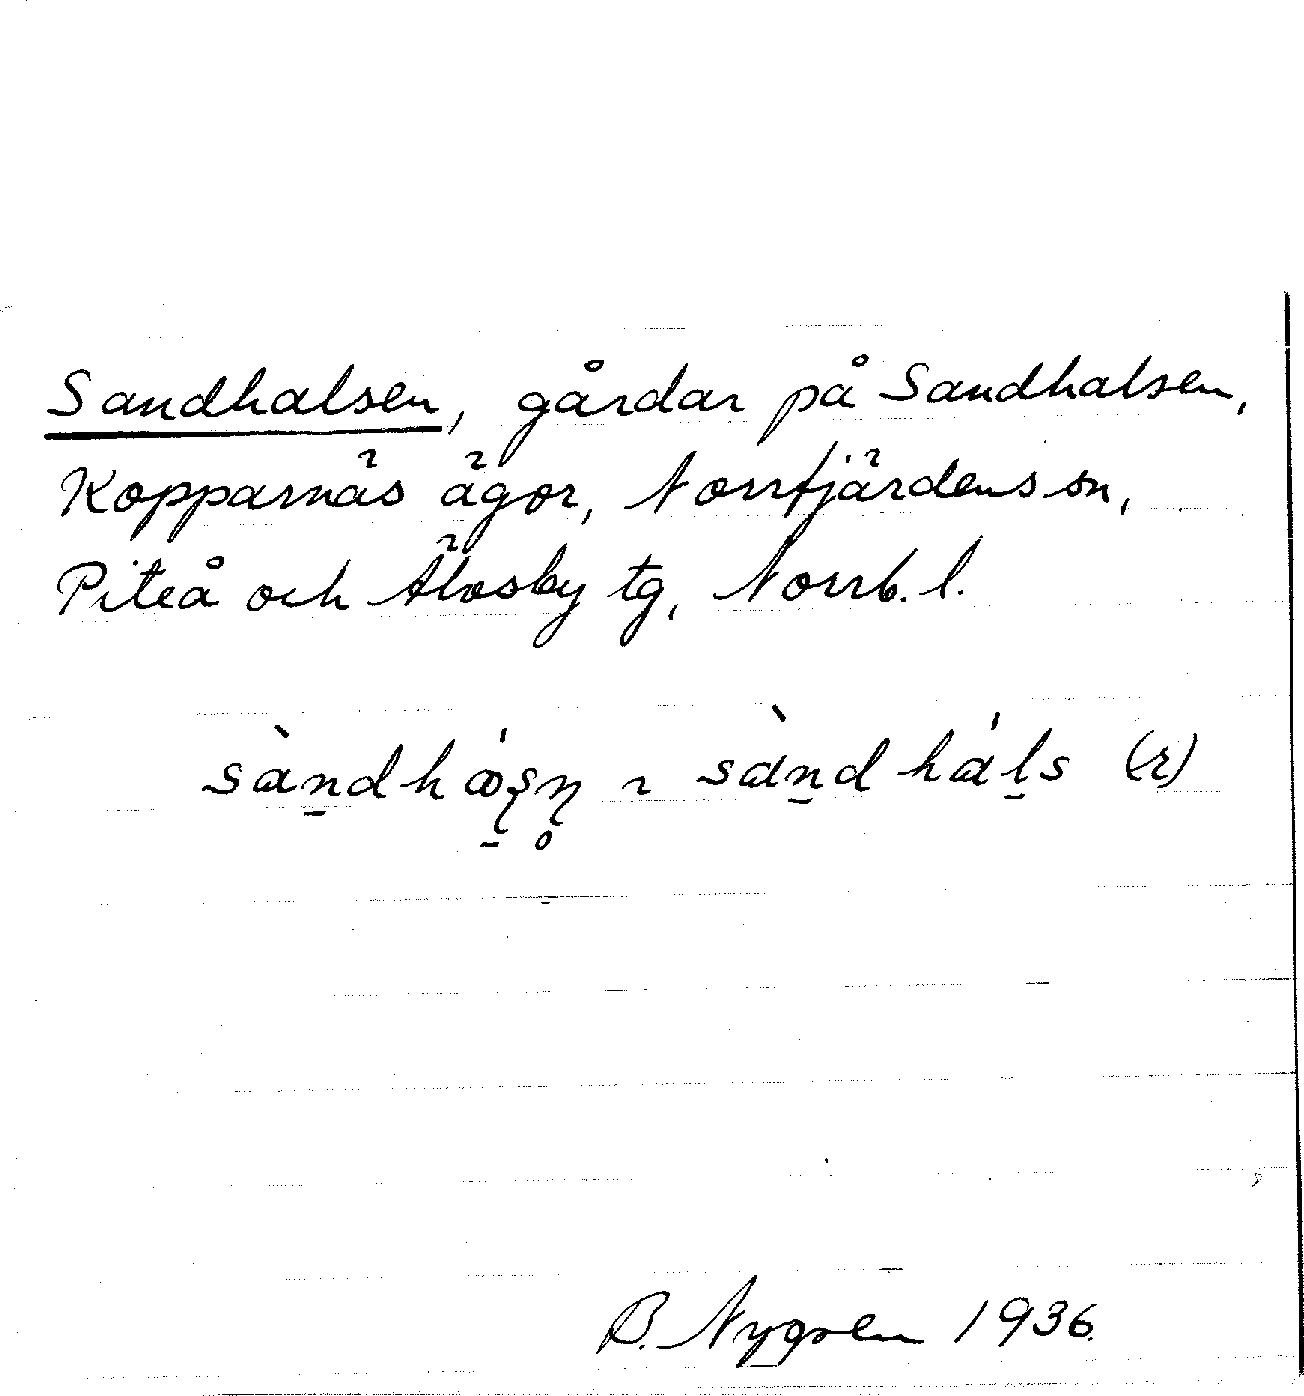 Sandhalsen, gårdar på Sandhalsen,
Kopparnäs ägor, Norrfjärdens sn,
Piteå och Älvsby tg, Norrb. l.
sàn̠dhá̠l̠s (r)
B. Nygren 1936.